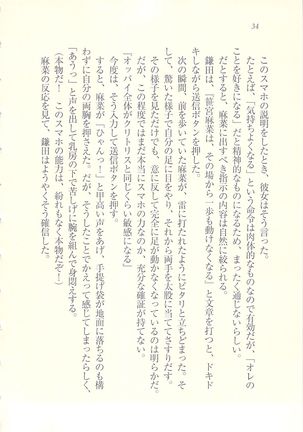 34
このスマホの説明をしたとき、彼女はそう言った。
たとえば、「気持ちよくなる」という命令は肉体的なものなので有効だが、「オレの
ことを好きになる」だと精神的なものになるため、まったく通じないらしい。
だとすると、麻菜に出すべき指示の内容は自然に絞られる。
鎌田は、「笹宮麻菜は、その場から一歩も動けなくなる」と文章を打つと、ドキド
キしながら送信ボタンを押した。
次の瞬間、前を歩いていた麻菜が、雷に打たれたようにピタリと立ちどまった。そ
して、驚いた様子で自分の足に目をやり、それから両手を太股に当ててさすりだす。
その様子を見ただけでも、意に反して完全に足が動かなくなっているのは明らかだ。
だが、この程度ではまだ本当にスマホの力なのか、充分な確証が持てない。
「オッパイ全体がクリトリスと同じくらい敏感になる」
今度は、そう入力して送信ボタンを押す。
すると、麻菜が「ひゃんっ!」と甲高い声をあげ、手提げ袋が地面に落ちるのも構
わずに自分の両胸を押さえた。だが、そうしたことでかえって感じてしまったらしく、
「あうっ」と声を出して乳房の下で苦しげに腕を組んで身悶えする。
(本物だ!　このスマホの能力は、紛れもなく本物だぞ!)
麻菜の反応を見て、鎌田はようやくそう確信した。